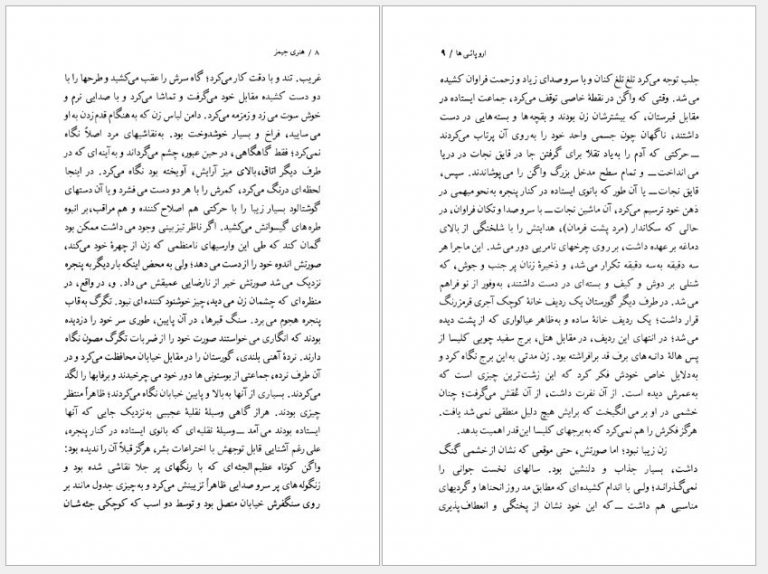 ۸ / هنری جیمز
غریب. تند و با دقت کار می‌کرد؛ گاه سرش را عقب می‌کشید و طرحها را با
دو دست کشیده مقابل خود می‌گرفت و تماشا می‌کرد و با صدایی نرم و
خوش سوت می زد و زمزمه می‌کرد. دامن لباس زن که به‌هنگام قدم‌زدن به او
می‌سایید، فراخ و بسیار خوشدوخت بود. به‌نقاشیهای مرد اصلاً نگاه
نمی‌کرد؛ فقط گاهگاهی، در حین عبور، چشم می‌گرداند و به‌آینه‌ای که در
طرف دیگر اتاق، بالای میز آرایش، آویخته بود نگاه می‌کرد. در اینجا
لحظه‌ای درنگ می‌کرد، کمرش را با هر دو دست می فشرد و یا آن دستهای
گوشتالود بسیار زیبا را با حرکتی هم اصلاح کننده و هم مراقب، بر انبوه
طره های گیسوانش می‌کشید. اگر ناظر تیزبینی وجود می داشت ممکن بود
گمان کند که طی این وارسیهای نامنظمی که زن از چهرهٔ خود می‌کند،
صورتش اندوه خود را از دست می دهد؛ ولی به محض اینکه بار دیگر به پنجره
نزدیک می‌شد صورتش خبر از نارضایی عمیقش می‌داد. و، در واقع، در
منظره‌ای که چشمان زن می‌دید، چیز خوشنود کننده ای نبود. تگرگ به‌قاب
پنجره هجوم می‌برد. سنگ قبرها، در آن پایین، طوری سر خود را دزدیده
بودند که انگاری می خواستند صورت خود را از ضربات تگرگ مصون نگاه
دارند. نردهٔ آهنی بلندی، گورستان را در مقابل خیابان محافظت می‌کرد و در
آن طرف نرده، جماعتی از بوستونی ها دور خود می چرخیدند و برفابها را لگد
می‌کردند. بسیاری از آنها به‌بالا و پایین خیابان نگاه می‌کردند؛ ظاهراً منتظر
چیزی بودند. هراز گاهی وسیلهٔ نقلیهٔ عجیبی به‌نزدیک جایی که آنها
ایستاده بودند می‌آمد ـــ وسیلهٔ نقلیه‌ای که بانوی ایستاده در کنار پنجره،
علی رغم آشنایی قابل توجهش با اختراعات بشر، هرگز قبلاً آن را ندیده بود:
واگن کوتاه عظیم‌الجثه‌ای که با رنگهای پر جلا نقاشی شده بود و
زنگوله‌های پر سر و صدایی ظاهراً تزیینش می‌کرد و به‌چیزی جدول مانند بر
روی سنگفرش خیابان متصل بود و توسط دو اسب که کوچکی جثه‌شان
اروپائی ها / ۹
جلب توجه می‌کرد تلغ تلغ کنان و با سر و صدای زیاد و زحمت فراوان کشیده
می شد. وقتی که واگن در نقطهٔ خاصی توقف می‌کرد، جماعت ایستاده در
مقابل قبرستان، که بیشترشان زن بودند و بقچه‌ها و بسته‌هایی در دست
داشتند، ناگهان چون جسمی واحد خود را به‌روی آن پرتاب می‌کردند
ـــ حرکتی که آدم را به‌یاد تقلاّ برای گرفتن جا در قایق نجات در دریا
می انداخت ـــ و تمام سطح مدخل بزرگ واگن را می‌پوشاندند. سپس،
قایق نجات ـــ یا آن طور که بانوی ایستاده در کنار پنجره به‌نحو مبهمی در
ذهن خود ترسیم می‌کرد، آن ماشین نجات ـــ با سر و صدا و تکان فراوان، در
حالی که سکاندار (مرد پشت فرمان)، هدایتش را با شلختگی از بالای
دماغه بر عهده داشت، بر روی چرخهای نامریی دور می‌شد. این ماجرا هر
سه دقیقه به‌سه دقیقه تکرار می‌شد، و ذخیرهٔ زنان پر جنب و جوش، که
شنلی بر دوش و کیف و بسته‌ای در دست داشتند، به‌وفور از نو فراهم
می شد. در طرف دیگر گورستان یک ردیف خانهٔ کوچک آجری قرمزرنگ
قرار داشت؛ یک ردیف خانهٔ ساده و به‌ظاهر عیالواری که از پشت دیده
می‌شد؛ در انتهای این ردیف، در مقابل هتل، برج سفید چوبی کلیسا از
پس هالهٔ دانه‌های برف قد برافراشته بود. زن مدتی به‌این برج نگاه کرد و
به‌دلایل خاص خودش فکر کرد که این زشت‌ترین چیزی است که
به‌عمرش دیده است. از آن نفرت داشت، از آن عُقش می‌گرفت؛ چنان
خشمی در او بر می انگیخت که برایش هیچ دلیل منطقی نمی شد یافت.
هرگز فکرش را هم نمی‌کرد که به‌برجهای کلیسا این قدر اهمیت بدهد.
زن زیبا نبود؛ اما صورتش، حتی موقعی که نشان از خشمی گنگ
داشت، بسیار جذاب و دلنشین بود. سالهای نخست جوانی را
نمی‌گذراند؛ ولی با اندام کشیده‌ای که مطابق مد روز انحناها و گردیهای
مناسبی هم داشت ـــ که این خود نشان از پختگی و انعطاف‌پذیری